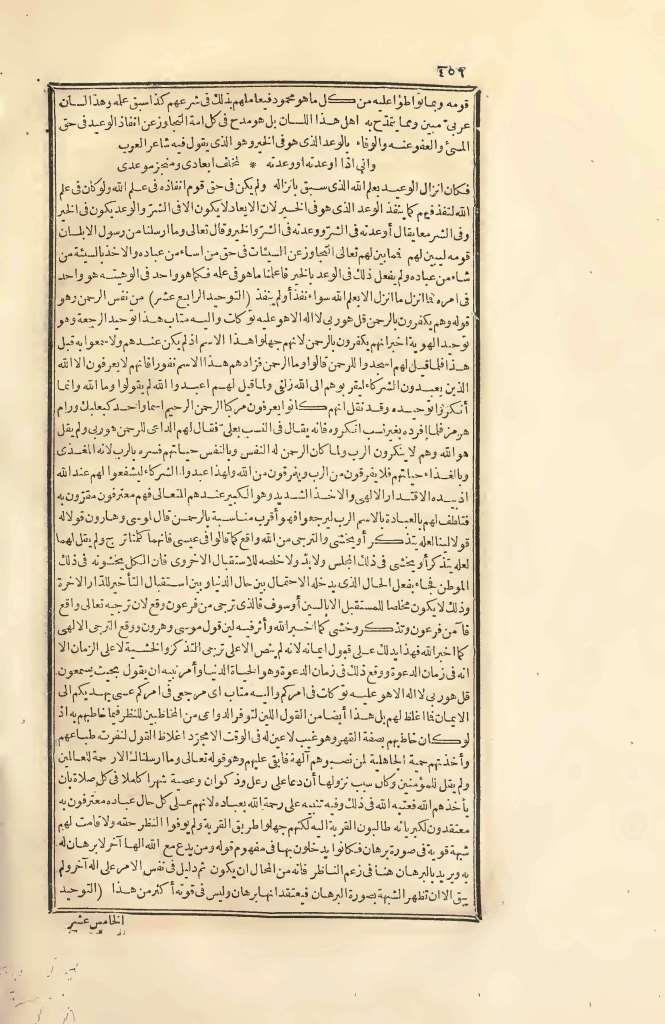 ٤٥٩
قومه وبما تواطؤا عليه من كل ما هو محمود فيعاملهم بذلك فى شرعهم كذا سبق علمه وهذا لسان
عربىّ مبين ومما يتمدّح به اهل هذا اللسان بل هو مدح فى كل امة التجاوز عن انفاذ الوعيد فى حق
المسئ والعفو عنه والوفاء بالوعد الذى هو فى الخير وهو الذى يقول فيه شاعر العرب
وانى اذا اوعدته او وعدته * لمخلف ايعادى ومنجز موعدى
فكان انزال الوعيد بعلم الله الذى سبق بانزاله ولم يكن فى حق قوم انفاذه فى علم الله ولو كان فى علم
الله لنفذ فيهم كما ينفذ الوعد الذى هو فى الخير لان الايعاد لا يكون الا فى الشرّ والوعد يكون فى الخير
وفى الشر معا يقال أوعدته فى الشرّ ووعدته فى الشرّ والخير وقال تعالى وما ارسلنا من رسول الا بلسان
قومه ليبين لهم فمما بين لهم تعالى التجاوز عن السيئات فى حق من اساء من عباده والاخذ بالسيئة من
شاء من عباده ولم يفعل ذلك فى الوعد بالخير فاعلمنا ما هو فى علمه فكما هو واحد فى الوهيته هو واحد
فى امره فما انزل ما انزل الا بعلم الله سواء نفذ أو لم ينفذ (التوحيد الرابع عشر) من نفس الرحمن وهو
قوله وهم يكفرون بالرحمن قل هو ربى لا اله الا هو عليه توكات واليه متاب هذا توحيد الرجعة وهو
توحيد الهوية اخبر انهم يكفرون بالرحمن لانهم جهلوا هذا الاسم اذ لم يكن عندهم ولا سمعوا به قبل
هذا فلما قيل لهم اسجدوا للرحمن قالوا وما الرحمن فزادهم هذا الاسم نفورا فانهم لا يعرفون الا الله
الذين يعبدون الشركاء ليقربوهم الى الله زلفى ولما قيل لهم اعبدوا الله لم يقولوا وما الله وانما
أنكروا توحيده وقد نقل انهم كانوا يعرفون مركبا الرحمن الرحيم اسما واحدا كبعلبك ورام
هرمز فلما افرده بغير نسب انكروه فانه يقال فى النسب بعلىّ فقال لهم الداعى للرحمن هو ربى ولم يقل
هو الله وهم لا ينكرون الرب ولما كان الرحمن له النفس وبالنفس حياتهم فسره بالرب لانه المغذى
وبالغذاء حياتهم فلا يفرقون من الرب ويفرقون من الله ولهذا عبدوا الشركاء ليشفعوا لهم عند الله
اذ بيده الاقتدار الالهى والاخذ الشديد وهو الكبير عندهم المتعالى فهم معترفون مقرّون به
فتلطف لهم بالعبادة بالاسم الرب ليرجعوا فهو أقرب مناسبة بالرحمن قال لموسى وهارون قولا له
قولا لينا لعله يتذكر أو يخشى والترجى من الله واقع كما قالوا فى عيسى فانهما كلمتا ترج ولم يقل لهما
لعله يتذكر أو يخشى فى ذلك المجلس ولا بدّ ولا خلصه للاستقبال الاخروى فان الكل يخشونه فى ذلك
الموطن فجاء بفعل الحال الذى يدخله الاحتمال بين حال الدنيا وبين استقبال التأخير للدّار الاخرة
وذلك لا يكون مخلصا للمستقبل الا بالسين أو سوف فالذى ترجى من فرعون وقع لان ترجيه تعالى واقع
فآمن فرعون وتذكر وخشى كما اخبر الله واثر فيه لين قول موسى وهرون ووقع الترجى الالهى
كما اخبر الله فهذا يدلك على قبول ايمانه لانه لم ينص الا على ترجى التذكر والخشية لا على الزمان الا
انه فى زمان الدعوة ووقع ذلك فى زمان الدعوة وهو الحياة الدنيا وأمر نبيه ان يقول بحيث يسمعون
قل هو ربى لا اله الا هو عليه توكات فى امركم واليه متاب اى مرجعى فى امركم عسى يهديكم الى
الايمان فما اغلظ لهم بل هذا أيضا من القول اللين لتوفر الدواعى من المخاطبين للنظر فيما خاطبهم به اذ
لو كان خاطبهم بصفة القهر وهو غيب لا عين له فى الوقت الا مجرّد اغلاظ القول لنفرت طباعهم
وأخذتهم حمية الجاهلية لمن نصبوهم آلهة فابقى عليهم وهو قوله تعالى وما ارسلناك الا رحمة للعالمين
ولم يقل للمؤمنين وكان سبب نزولها أن دعا على رعل وذكوان وعصية شهرا كاملا فى كل صلاة بان
يأخذهم الله فعتبه الله فى ذلك وفيه تنبيه على رحمة الله بعباده لانهم على كل حال عباده معترفون به
معتقدون لكبريائه طالبون القربة اليه لكنهم جهلوا طريق القربة ولم يوفوا النظر حقه ولا قامت لهم
شبهة قوية فى صورة برهان فكانوا يدخلون بها فى مفهوم قوله ومن يدع مع الله الها آخر لا برهان له
به ويريد بالبرهان هنا فى زعم الناظر فانه من المحال ان يكون ثم دليل فى نفس الامر على اله آخر ولم
يبق الا ان تظهر الشبهة بصورة البرهان فيعتقد انها برهان وليس فى قوته أكثر من هذا (التوحيد
الخامس عشر